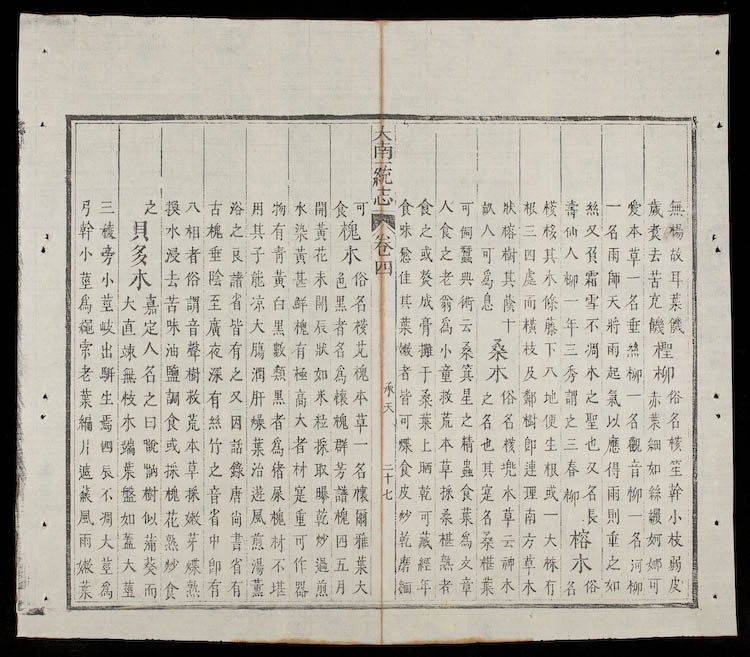 無楊故耳葉饑
歲煑去苦充饑
檉柳
俗名核幹小枝弱皮
赤葉細如絲縷婀娜可
愛本草一名垂絲柳一名觀音柳一名河柳
一名雨師天將雨起氣以應得雨則垂之如
絲又負霜雪不凋木之聖也又名長
壽仙人柳一年三秀謂之三春柳
榕木
俗
名
核榕其木條藤下入地便生根或一大株有
根三四處而橫枝及鄰樹卽連理南方草木
狀榕樹其蔭十
畝人可爲息
桑木
俗名核兜本草云神木
之名也其寔名桑椹葉
可飼蠶典術云桑箕星之精蟲食葉爲文章
人食之老翁爲小童救荒本草採桑椹熟者
食之或熬成膏攤于桑葉上晒乾可藏經年
食味愈佳其葉嫩者皆可煠食皮炒乾磨麵
大南一統志
卷四
承天
二十七
可
食
槐木
俗名核槐本草一名櫰爾雅葉大
色黑者名爲櫰槐群芳譜槐四五月
開黃花未開辰狀如米粒採取曝乾炒過煎
水染黃甚鮮槐有極高大者材寔重可作器
物有青黃白黑數類黑者爲猪屎槐材不堪
用其子能凉大膓潤肝燥葉治遊風煎湯薰
浴之良諸省皆有之又因話錄唐尚書省有
古槐垂陰至廣夜深有絲竹之音省中卽有
入相者俗謂音聲樹救荒本草採嫩芽煠熟
換水浸去苦味油鹽調食或採槐花熟炒食
之
貝多木
嘉定人名之曰樹似蒲葵而
大直竦無枝木端葉盤如蓋大莖
三稜旁小莖岐出駢生焉四辰不凋大莖爲
弓幹小莖爲繩索老葉編片遮蔽風雨嫩葉